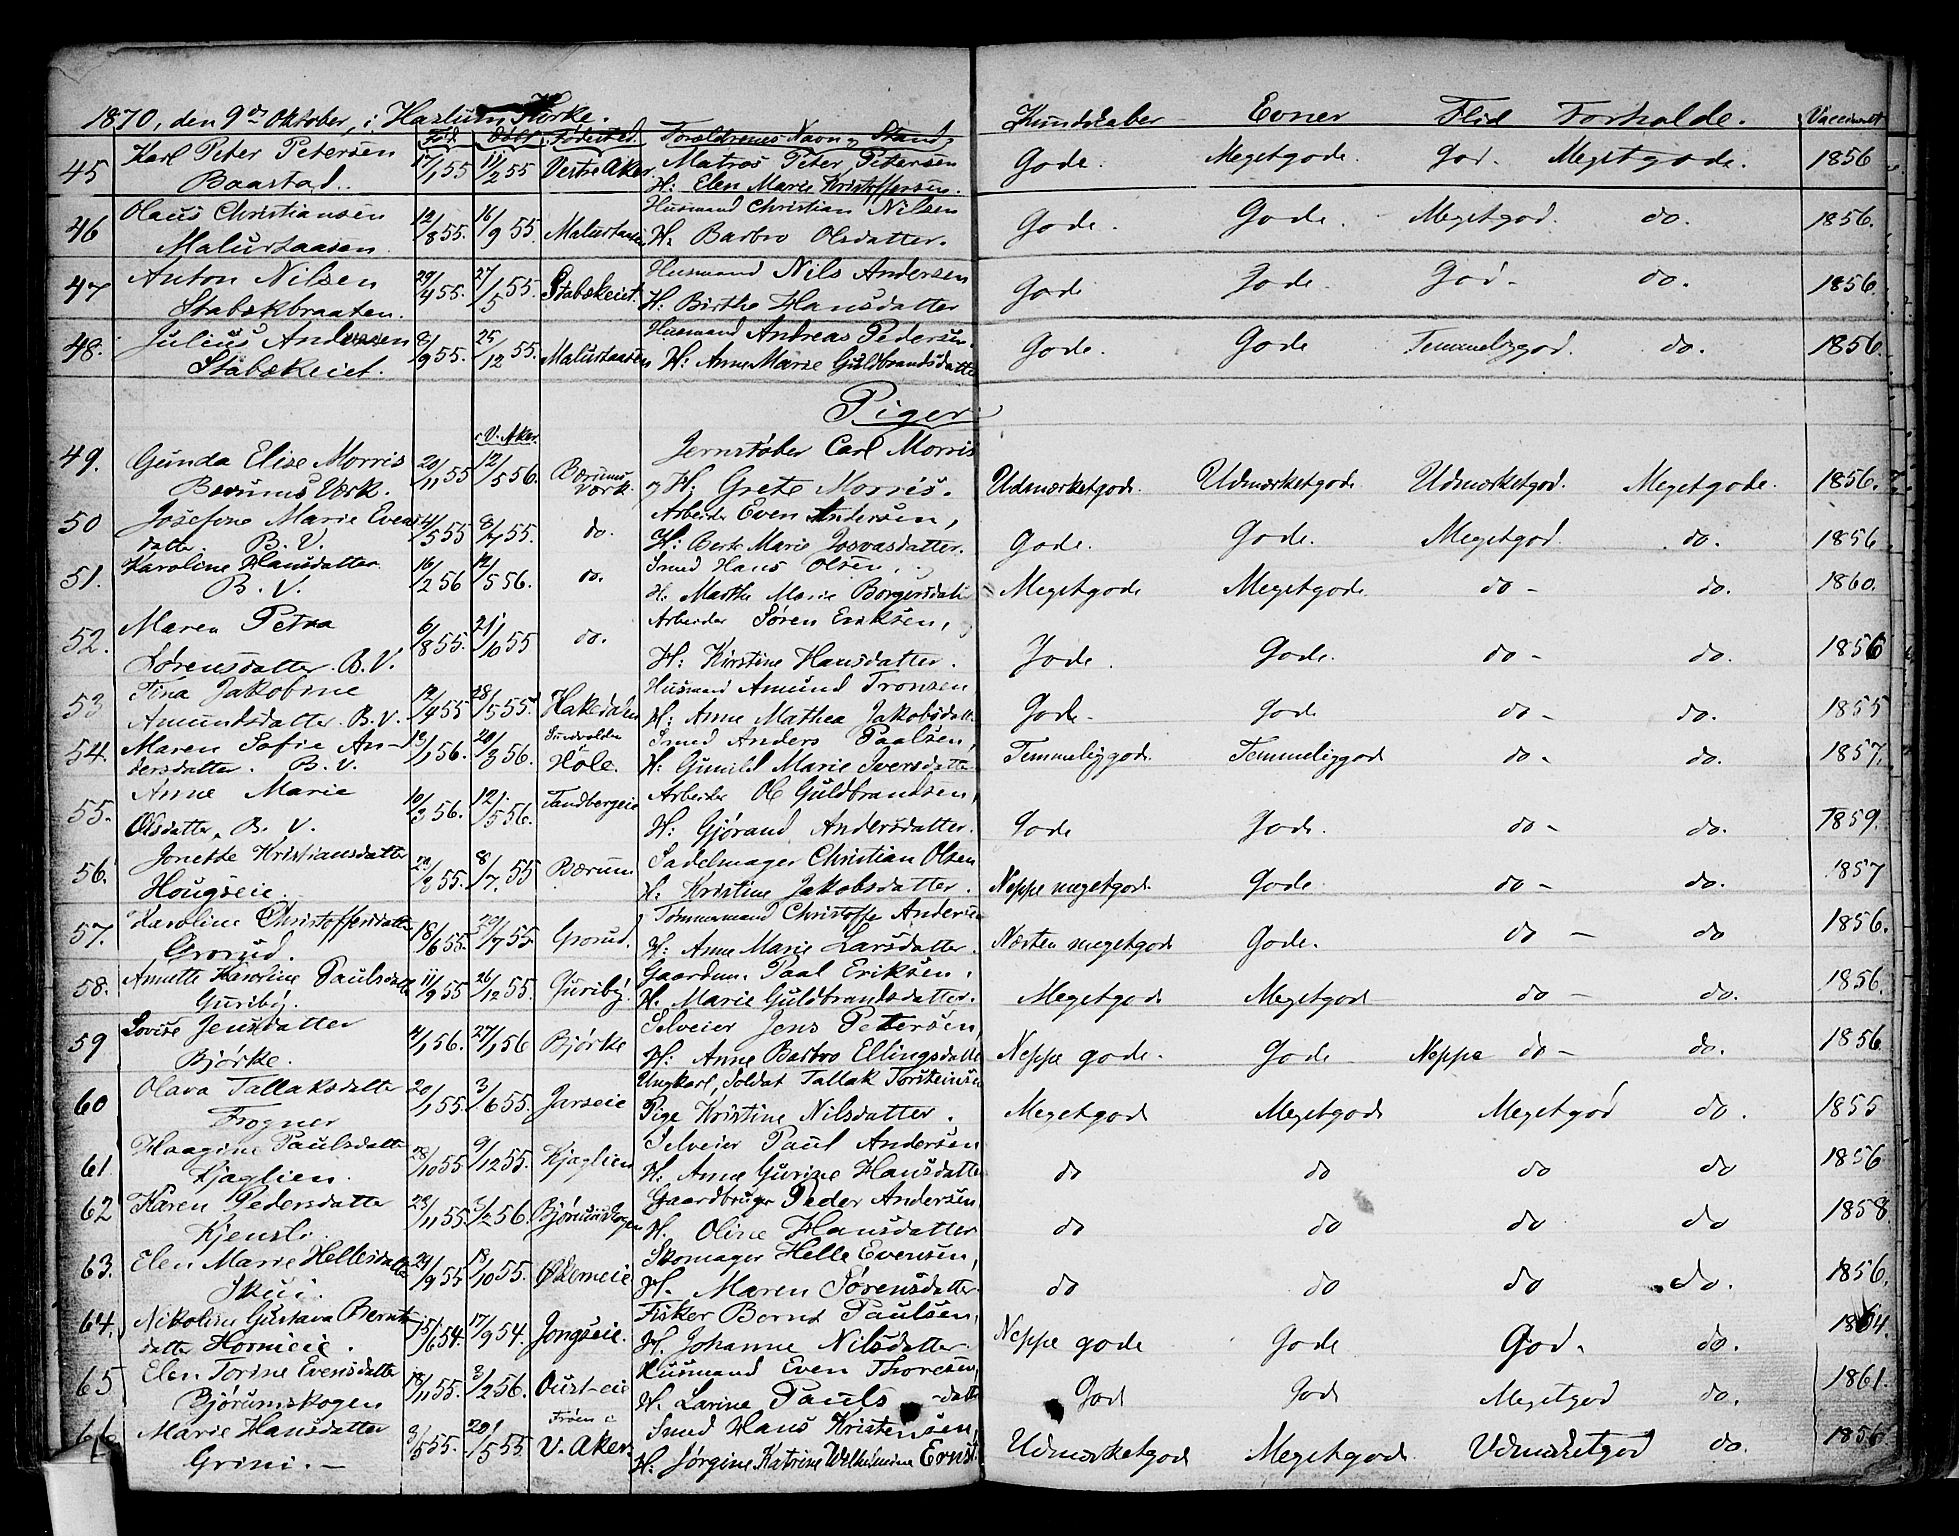 1870, den 9de Oktober, i Haslum Kirke.
Fød. Døbt Fødested. Forældrenes Navn og Stand, Kundskaber Evner Flid Forholde. Vaccineret
45 Karl Peter Petersen 17/1 55 11/2 55 Vestre Aker. Matros Peter Petersen Gode. Megetgode. God. Megetgode. 1856
Baastad. H: Elen Marie Kristoffersen.
46 Olaus Christiansen 12/8 55. 16/9 55. Malurtaasen Husmand Christian Nilsen Gode. Gode. Megetgod. do. 1856.
Malurtaasen H. Barbro Olsdatter.
47 Anton Nilsen 29/4 55. 27/5 55. Stabækeiet. Husmand Nils Andersen Gode Gode. God. do. 1856.
Stabækbraaten. H. Birthe Hansdatter
48. Julius Andersen 8/9 55. 25/12 55. Malurtaasen Husmand Andreas Pedersen. Gode. Gode Temmeliggod. do. 1856.
Stabækeiet. H: Anne Marie Guldbrandsdatter
Piger
V. Aker.
49. Gunda Elise Morris 20/11 55 12/5 56. Bærums Værk. Jernstøber Carl Morris Udmærketgode. Udmærketgode. Udmærketgod. Megetgode. 1856.
Bærums Værk. og H. Grete Morris.
50 Josefine Marie Evens 4/5 55 8/7 55. do. Arbeider Even Andersen, Gode. Gode. Megetgod. do. 1856
datter B. V. H: Berte Marie Josvasdatter.
51. Karoline Hansdatter 16/2 56 12/5 56. do. Smed Hans Olsen, Megetgode Megetgode. do - do. 1860.
B. V. H. Marthe Marie Borgersdatter
52. Maren Petra 6/8 55. 21/10 55 do. Arbeider Søren Eriksen, Gode. Gode. do - do. 1856
Sørensdatter. B. V. H: Kirstine Hansdatter.
53 Tina Jakobine 12/4 55 28/5 55. Hakedalen Husmand Amund Tronsen Gode. Gode do - do. 1855
Amundsdatter. B. V. H. Anne Mathea Jakobsdatt.
54. Maren Sofie An- 13/1 56. 20/3 56. Sundvolden Hole. Smed Anders Paalsen, Temmeliggode. Temmeliggod do - do. 1857.
dersdatter. B. V. H. Gunild Marie Iversdatter
55. Anne Marie 10/3 56. 12/5 56. Tandbergeie Arbeider Ole Guldbrandsen, Gode Gode. do - do. 1859.
Olsdatter, B. V. H: Gjørand Andersdatter.
56. Jonette Kristiansdatter 22/2 55. 8/7 55 Bærum Sadelmager Christian Olsen Neppe megetgod. Gode. do - do. 1857
Hougseie. H. Kristine Jakobsdatter.
57. Karoline Christoffersdatter 18/6 55. 29/7 55. Grorud. Tømmermand Christoffer Andersen Næsten megetgod Gode. do - do 1856.
Grorud. H. Anne Marie Larsdatter.
58. Annette Karoline Paulsdatter 11/9 55 26/12 55. Guriby. Gaardm. Paal Eriksen. Megetgod Megetgod do - do. 1856.
Guriby. H. Marie Guldbrandsdatter.
59 Lovise Jensdatter 4/1 56. 27/1 56 Bjørke Selveier Jens Petersen, Neppe gode. Gode Neppe do - do. 1856
Bjørke. H: Anne Barbro Ellingsdatter
60 Olava Tallaksdatter 20/1 55. 3/6 55. Jarseie Ungkarl, Soldat Tallak Torsteinsen Megetgod Megetgode Megetgod do. 1855
Frogner Pige Kristine Nilsdatter.
61. Haagine Paulsdatter 28/10 55 9/12 55. Kjaglien Selveier Paul Andersen do do do do 1856
Kjaglien. H. Anne Gurine Hansdatter
62 Karen Pedersdatter 23/11 55. 2/2 56. Bjørumskogen Gaardbruger Peder Andersen do do do do 1858
Kjensli H. Oline Hansdatter
63. Elen Marie Hellesdatter 24/9 55 13/10 55. Økerneie Skomager Helle Evensen, do do do do. 1856.
Skui. H. Maren Sørensdatter
64. Nikoline Gustava Bernt- 15/6 54. 17/9 54. Jongseie. Fisker Bernt Paulsen, Neppe gode Gode God. do. 1864.
datter Horneie. H. Johanne Nilsdatter
65 Elen Torine Evensdatter 18/11 55. 3/2 56. Oust-eie Husmand Even Thoresen, God God Megetgod do. 1861.
Bjørumskogen H. Larine Pauls-datt
66 Marie Hansdatter 3/5 55. 20/5 55 Frøen i V. Aker. Smed Hans Kristensen, Udmærketgod Megetgod. Udmærketgod do. 1856
Grini. - H. Jørgine Katrine Wilhelmine Ernst